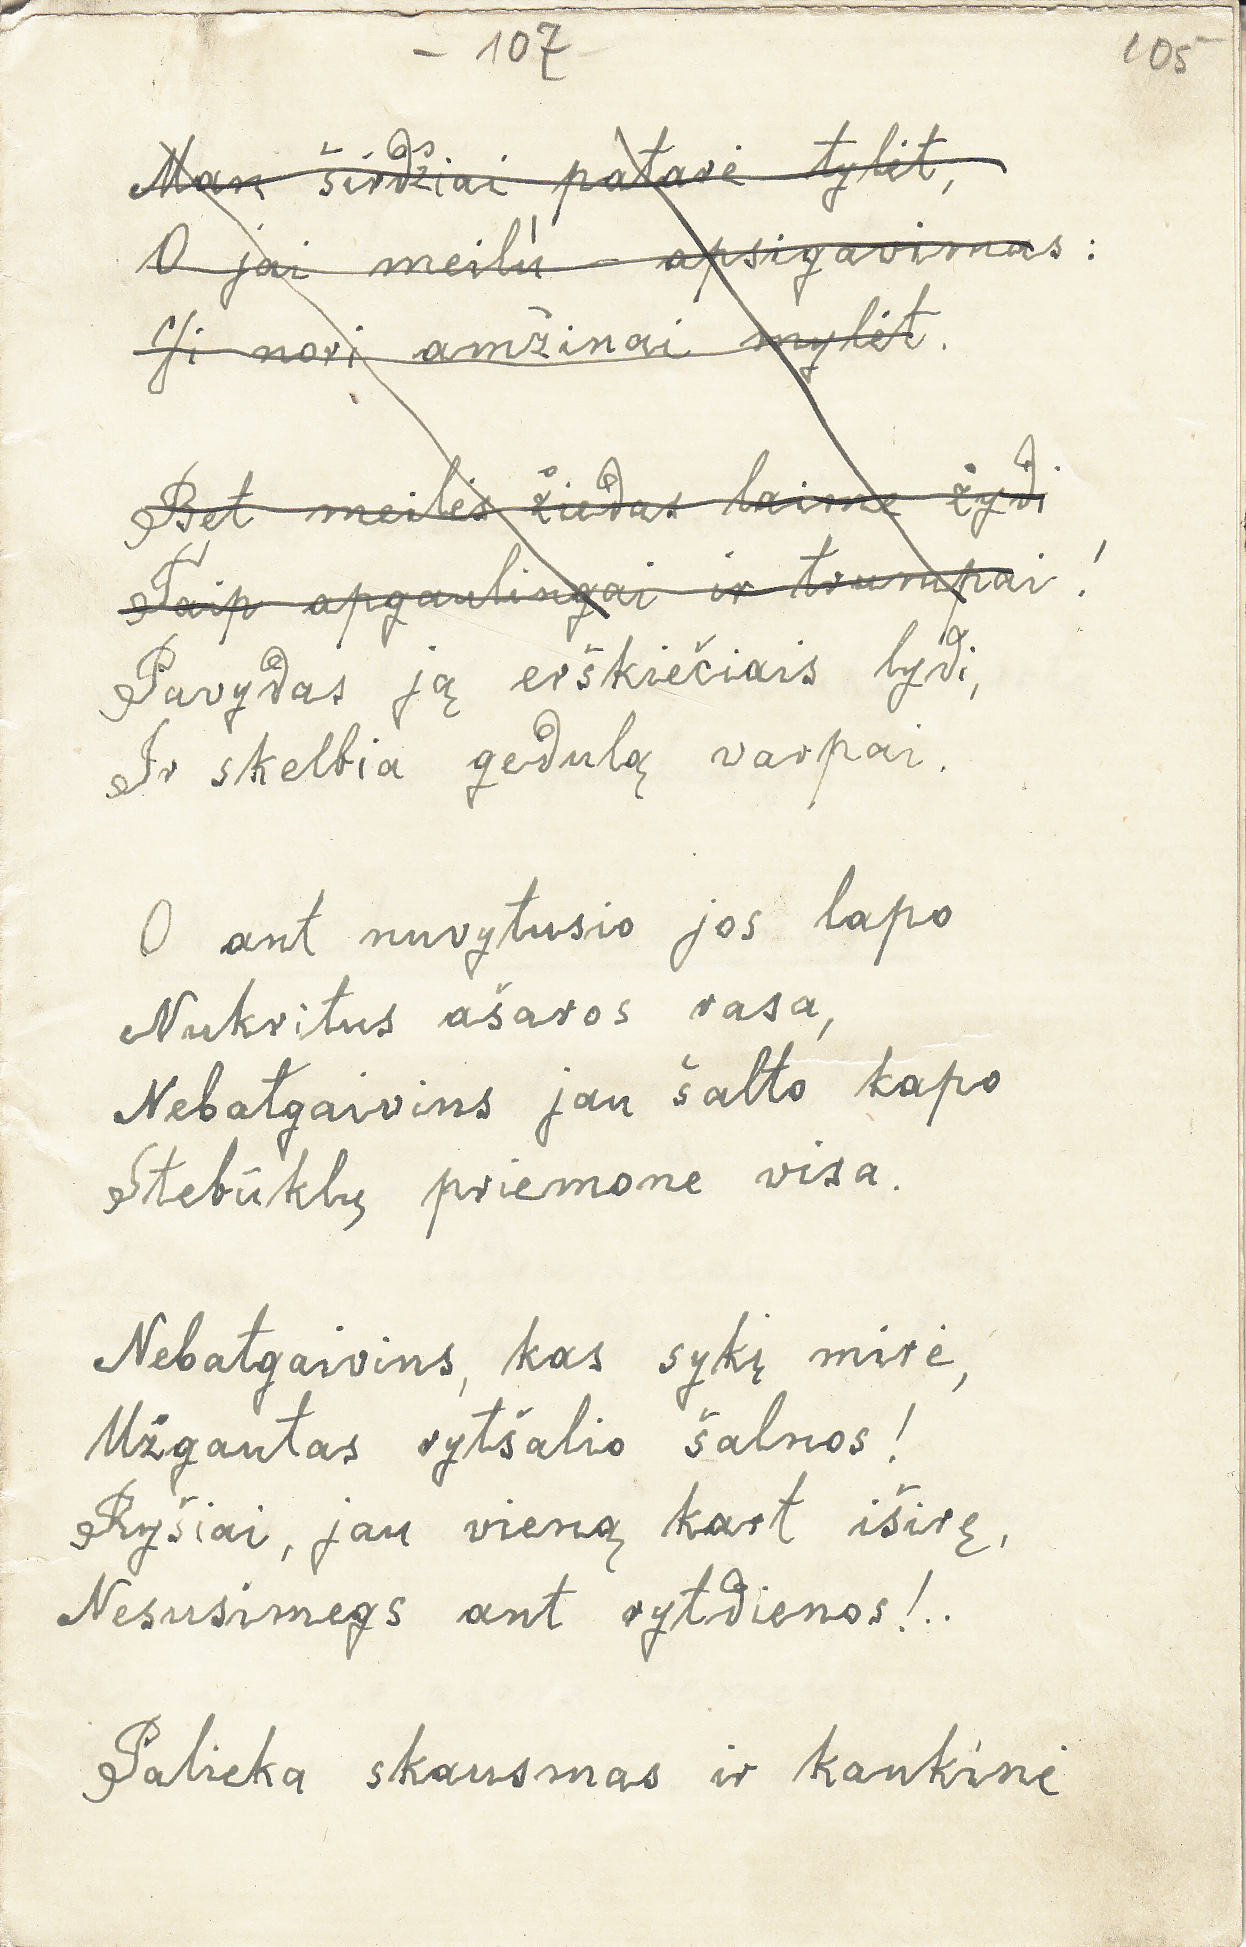 - 107 -
105
Man širdžiai patarė tylėt,
O jai meilė - apsigavimas:
Ji nori amžinai mylėt.
Bet meilės žiedas laime žydi
Taip apgaulingai ir trumpai!
Pavydas ją erškiečiais lydi,
Ir skelbia gedulą varpai.
O ant nuvytusio jos lapo
Nukritus ašaros rasa,
Nebatgaivins jau šalto kapo
Stebūklų priemone visa.
Nebatgaivins, kas sykį mirė,
Užgautas rytšalio šalnos!
Ryšiai, jau vieną kart iširę,
Nesusimegs ant rytdienos!..
Palieka skausmas ir kankinė